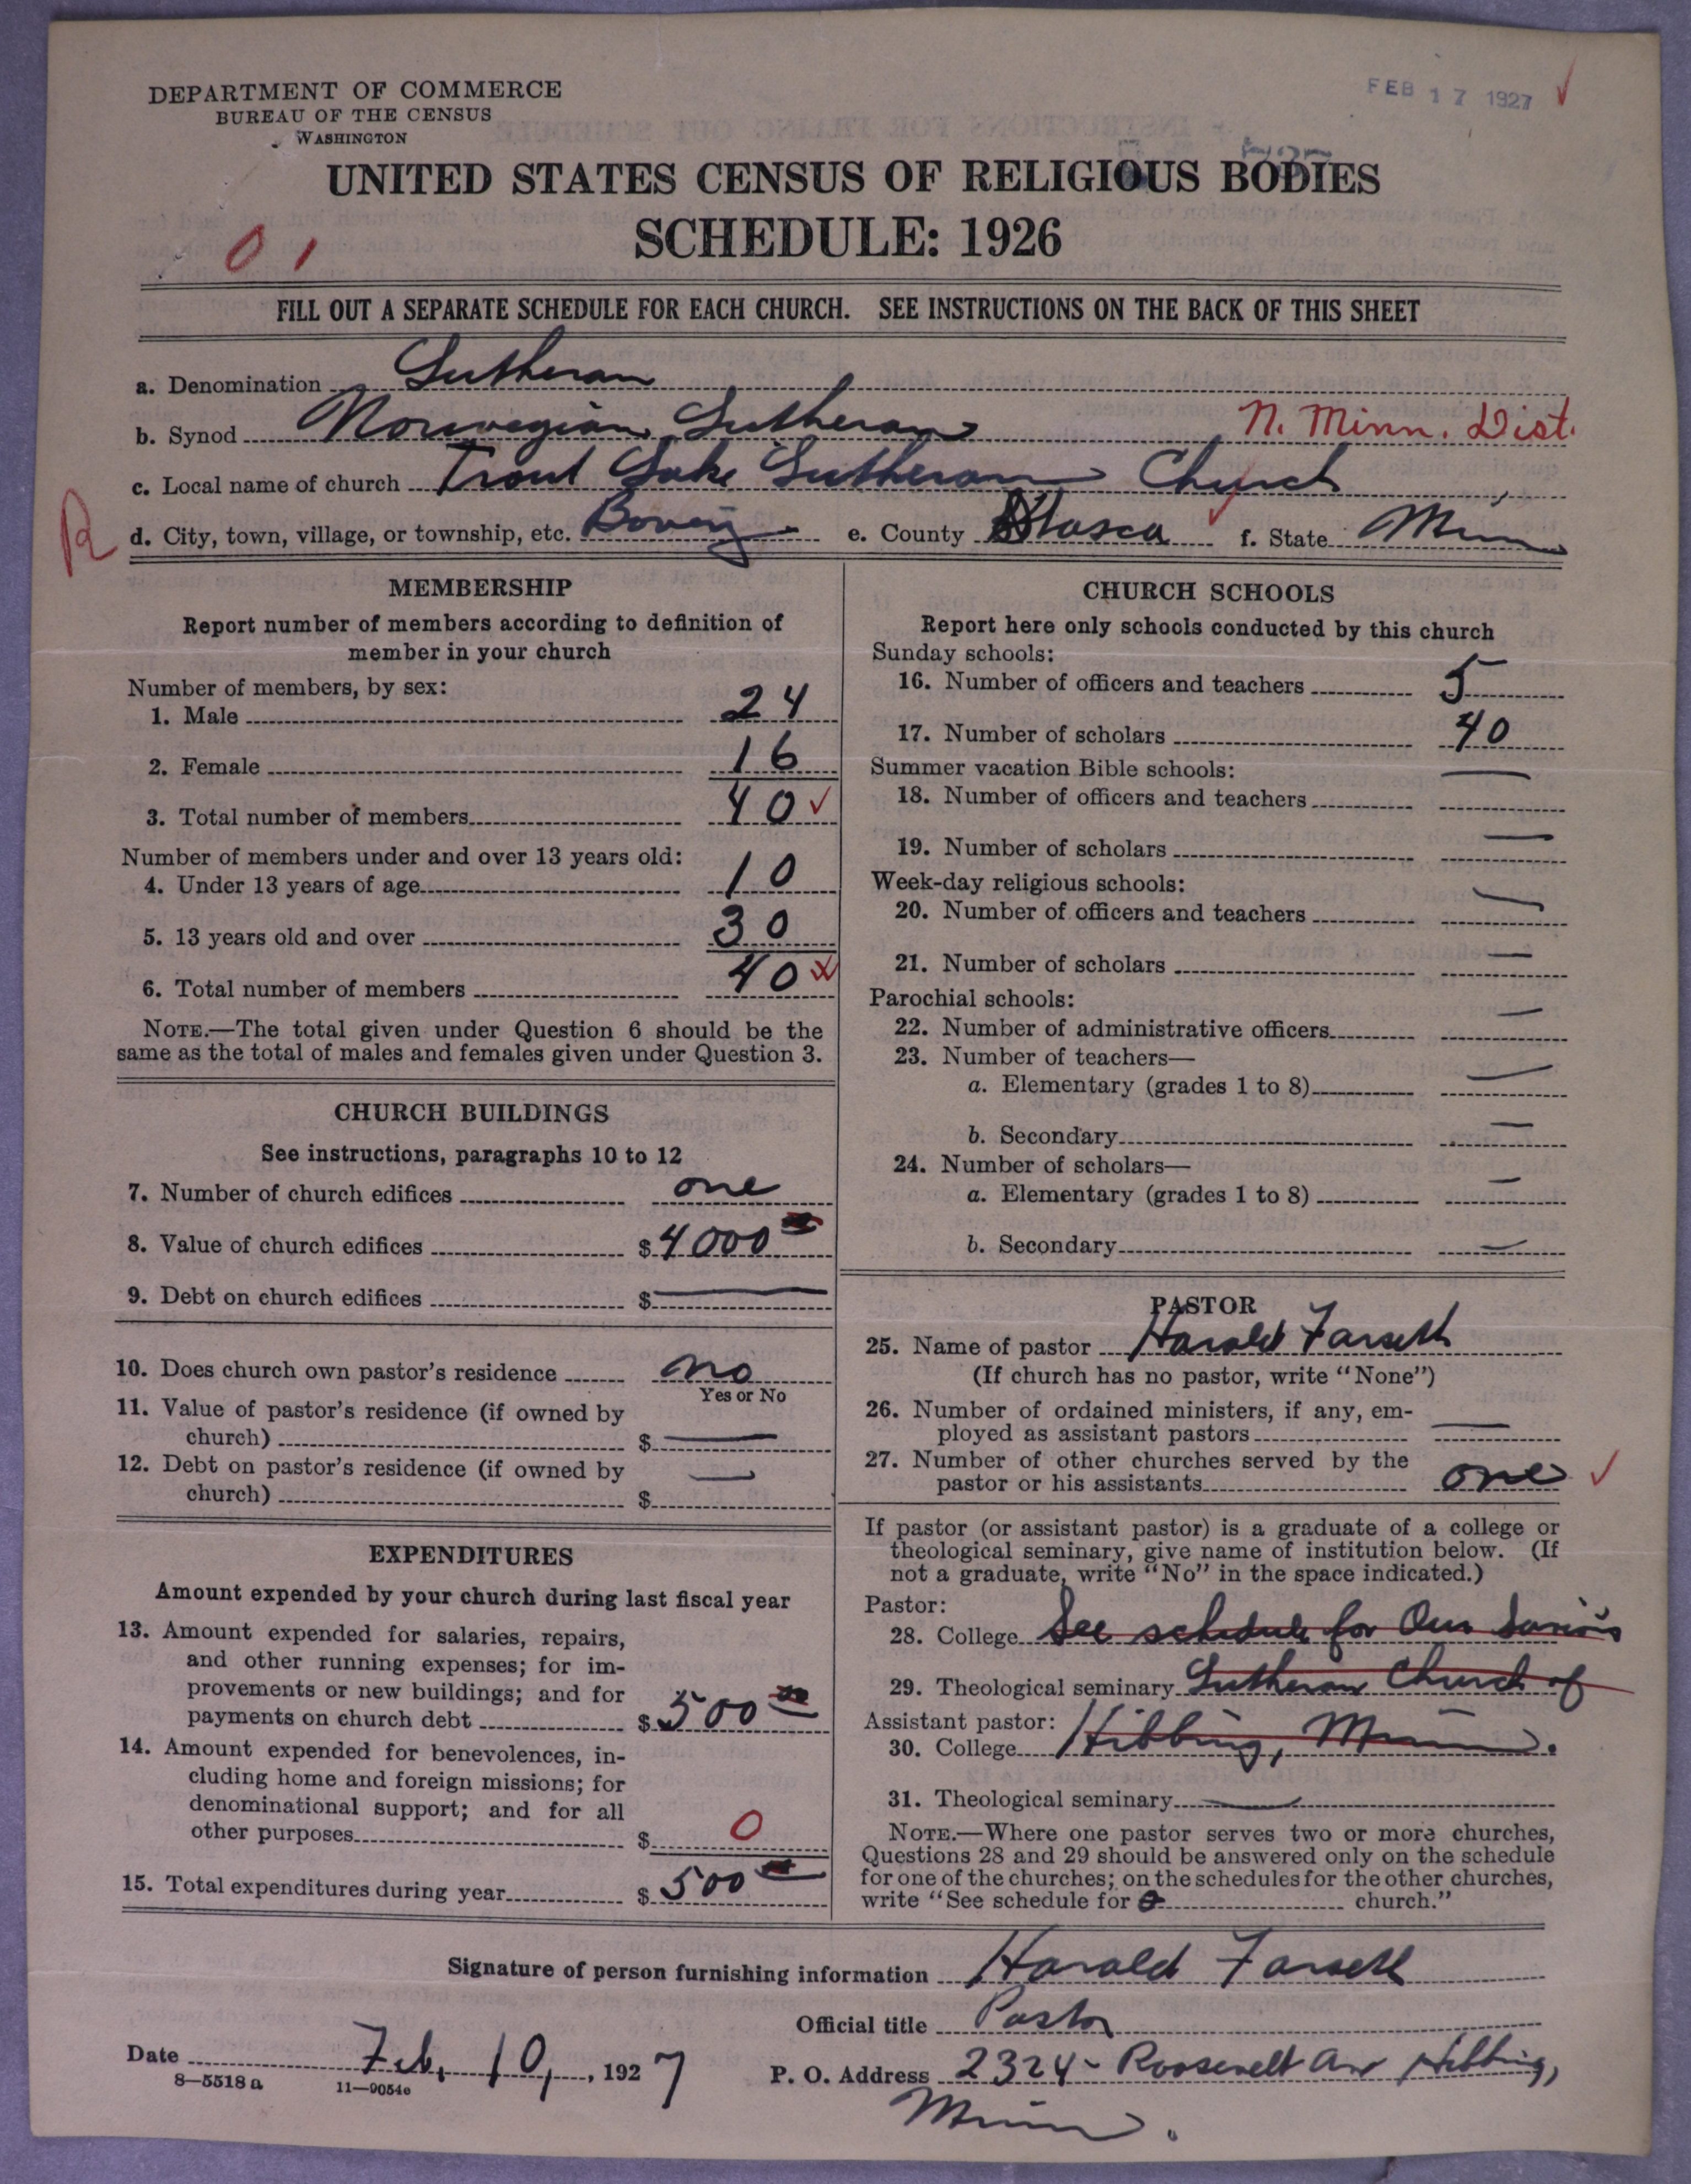 FEB 17 1927 ✓
DEPARTMENT OF COMMERCE
BUREAU OF THE CENSUS
WASHINGTON
UNITED STATES CENSUS OF RELIGIOUS BODIES
SCHEDULE: 1926
0 1
FILL OUT A SEPARATE SCHEDULE FOR EACH CHURCH. SEE INSTRUCTIONS ON THE BACK OF THIS SHEET
a. Denomination Lutheran
b. Synod Norwegian Lutheran N. Minn. Dist.
c. Local name of church Trout Lake Lutheran Church
R d. City, town, village, or township, etc. Bovey e. County Itasca f. State Minn
MEMBERSHIP
Report number of members according to definition of
member in your church
Number of members, by sex:
1. Male 24
2. Female 16
3. Total number of members 40 ✓
Number of members under and over 13 years old:
4. Under 13 years of age 10
5. 13 years old and over 30
6. Total number of members 40
NOTE.—The total given under Question 6 should be the
same as the total of males and females given under Question 3.
CHURCH BUILDINGS
See instructions, paragraphs 10 to 12
7. Number of church edifices one
8. Value of church edifices $ 4000
9. Debt on church edifices $ —
10. Does church own pastor's residence no
Yes or No
11. Value of pastor's residence (if owned by
church) $ —
12. Debt on pastor's residence (if owned by
church) $ —
EXPENDITURES
Amount expended by your church during last fiscal year
13. Amount expended for salaries, repairs,
and other running expenses; for im-
provements or new buildings; and for
payments on church debt $ 500
14. Amount expended for benevolences, in-
cluding home and foreign missions; for
denominational support; and for all
other purposes $ 0
15. Total expenditures during year $ 500
CHURCH SCHOOLS
Report here only schools conducted by this church
Sunday schools:
16. Number of officers and teachers 5
17. Number of scholars 40
Summer vacation Bible schools: —
18. Number of officers and teachers
19. Number of scholars —
Week-day religious schools:
20. Number of officers and teachers —
21. Number of scholars —
Parochial schools:
22. Number of administrative officers —
23. Number of teachers—
a. Elementary (grades 1 to 8) —
b. Secondary —
24. Number of scholars—
a. Elementary (grades 1 to 8) —
b. Secondary —
PASTOR
25. Name of pastor Harald Farseth
(If church has no pastor, write "None")
26. Number of ordained ministers, if any, em-
ployed as assistant pastors —
27. Number of other churches served by the
pastor or his assistants one ✓
If pastor (or assistant pastor) is a graduate of a college or
theological seminary, give name of institution below. (If
not a graduate, write "No" in the space indicated.)
Pastor:
28. College See schedule for Our Savior's
29. Theological seminary Lutheran Church of
Assistant pastor:
30. College Hibbing, Minn.
31. Theological seminary —
NOTE.—Where one pastor serves two or more churches,
Questions 28 and 29 should be answered only on the schedule
for one of the churches; on the schedules for the other churches,
write "See schedule for church."
Signature of person furnishing information Harald Farseth
Official title Pastor
Date Feb. 10, 1927 P. O. Address 2324 - Roosevelt Ave Hibbing,
8—5518a 11—9054c
Minn.